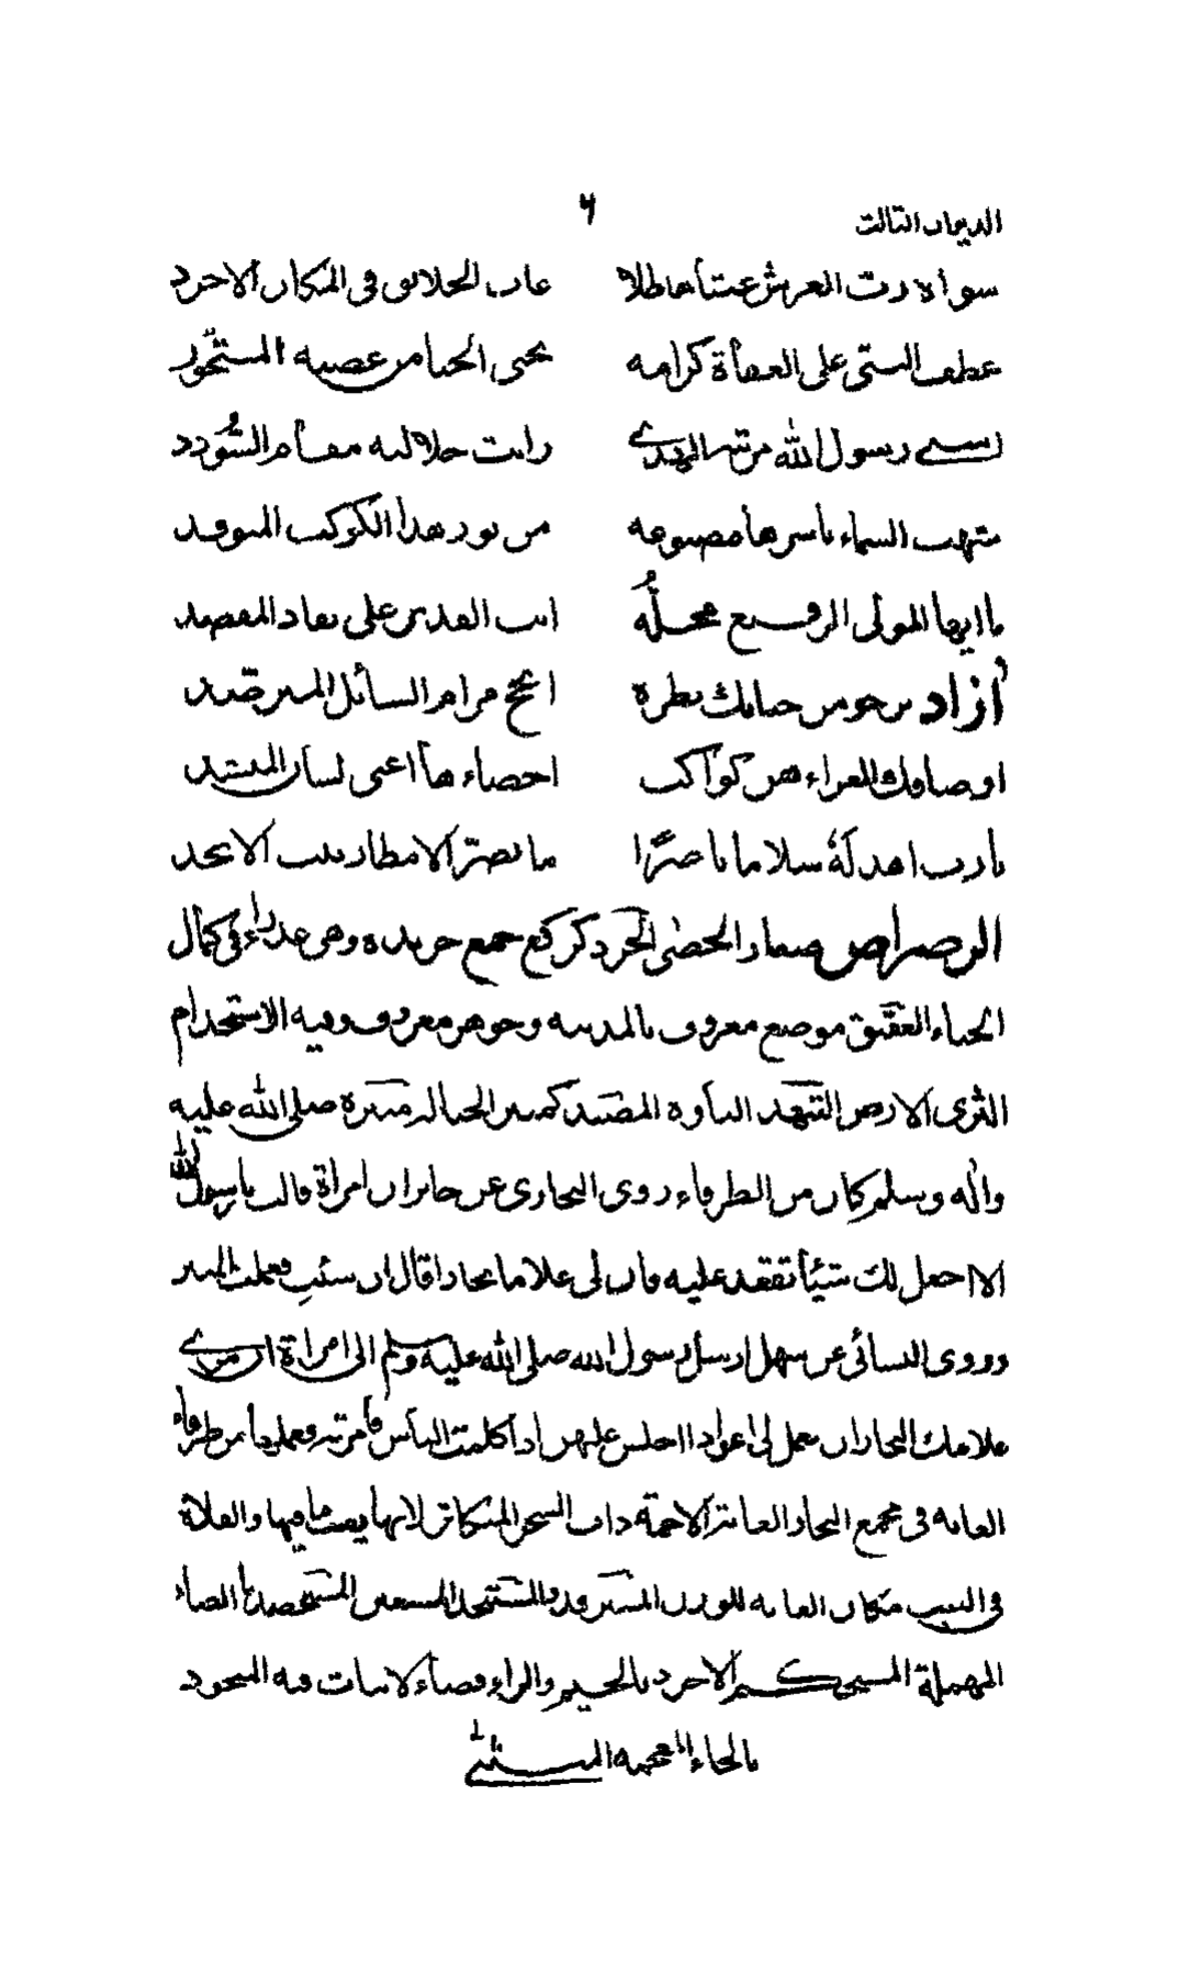 الديوان الثالث
٦
سواه رب العرش غيثا هاطلا غاث الخلائق في المكان الاجرد
عطف النبي على العصاة كرامه يحيى الحيا من عصبه المستحوز
رسول الله من تبر الهدى رايت جلالته مقام السودد
شهب السماء باسرها مصنوعه من نور هذا الكوكب المتوقد
يا ايها المولى الرفيع محله انت القدير على نفاد المقصد
آزاد يرجو من جنابك نظرة انجح مرام السائل المسترفد
اوصافك الغراء هن كواكب احصاءها اعيى لسان المنشد
يا رب اهد له سلاما ناضرا ما نضر الامطار بيت الابجد
الرضراض صغار الحصى الخرد كركع جمع خريده وهى عذراء في كمال
الحياء العقيق موضع معروف بالمدينه وجوهر معروف وفيه الاستخدام
الثرى الارض التنهد التأوه المنضد منبره صلى الله عليه
واله وسلم كان من الطرفاء روى البخارى عن جابر ان امراة قالت يا رسول الله
الا اجعل لك شيئا تقعد عليه فان لى غلاما نجارا قال ان شئت فعملت المنبر
وروى النسائى عن سهل ارسل رسول الله صلى الله عليه وسلم الى امراة ان مرى
غلامك النجار ان يعمل لى اعوادا اجلس عليهن اذا كلمت الناس فامرته فعملها من طرفاء
الغابه في مجمع البحار الغابة الاجمة ذات الشجر المتكاثر لانها يغيب ما فيها والغلاة
في البيت مكان الغابه للوزن المستنجد المستعين بالصاد
المهملة الاجرد بالجيم والراء فضاء لا نبات فيه
بالخاء المعجمه